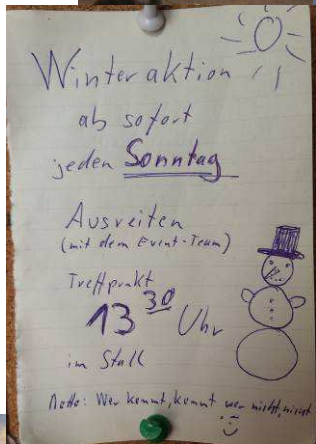 Winteraktion
ab sofort
jeden Sonntag
Ausreiten
(mit dem Event-Team)
Treffpunkt
13 30 Uhr
im Stall
Motto: Wer kommt, kommt wer nicht, nicht